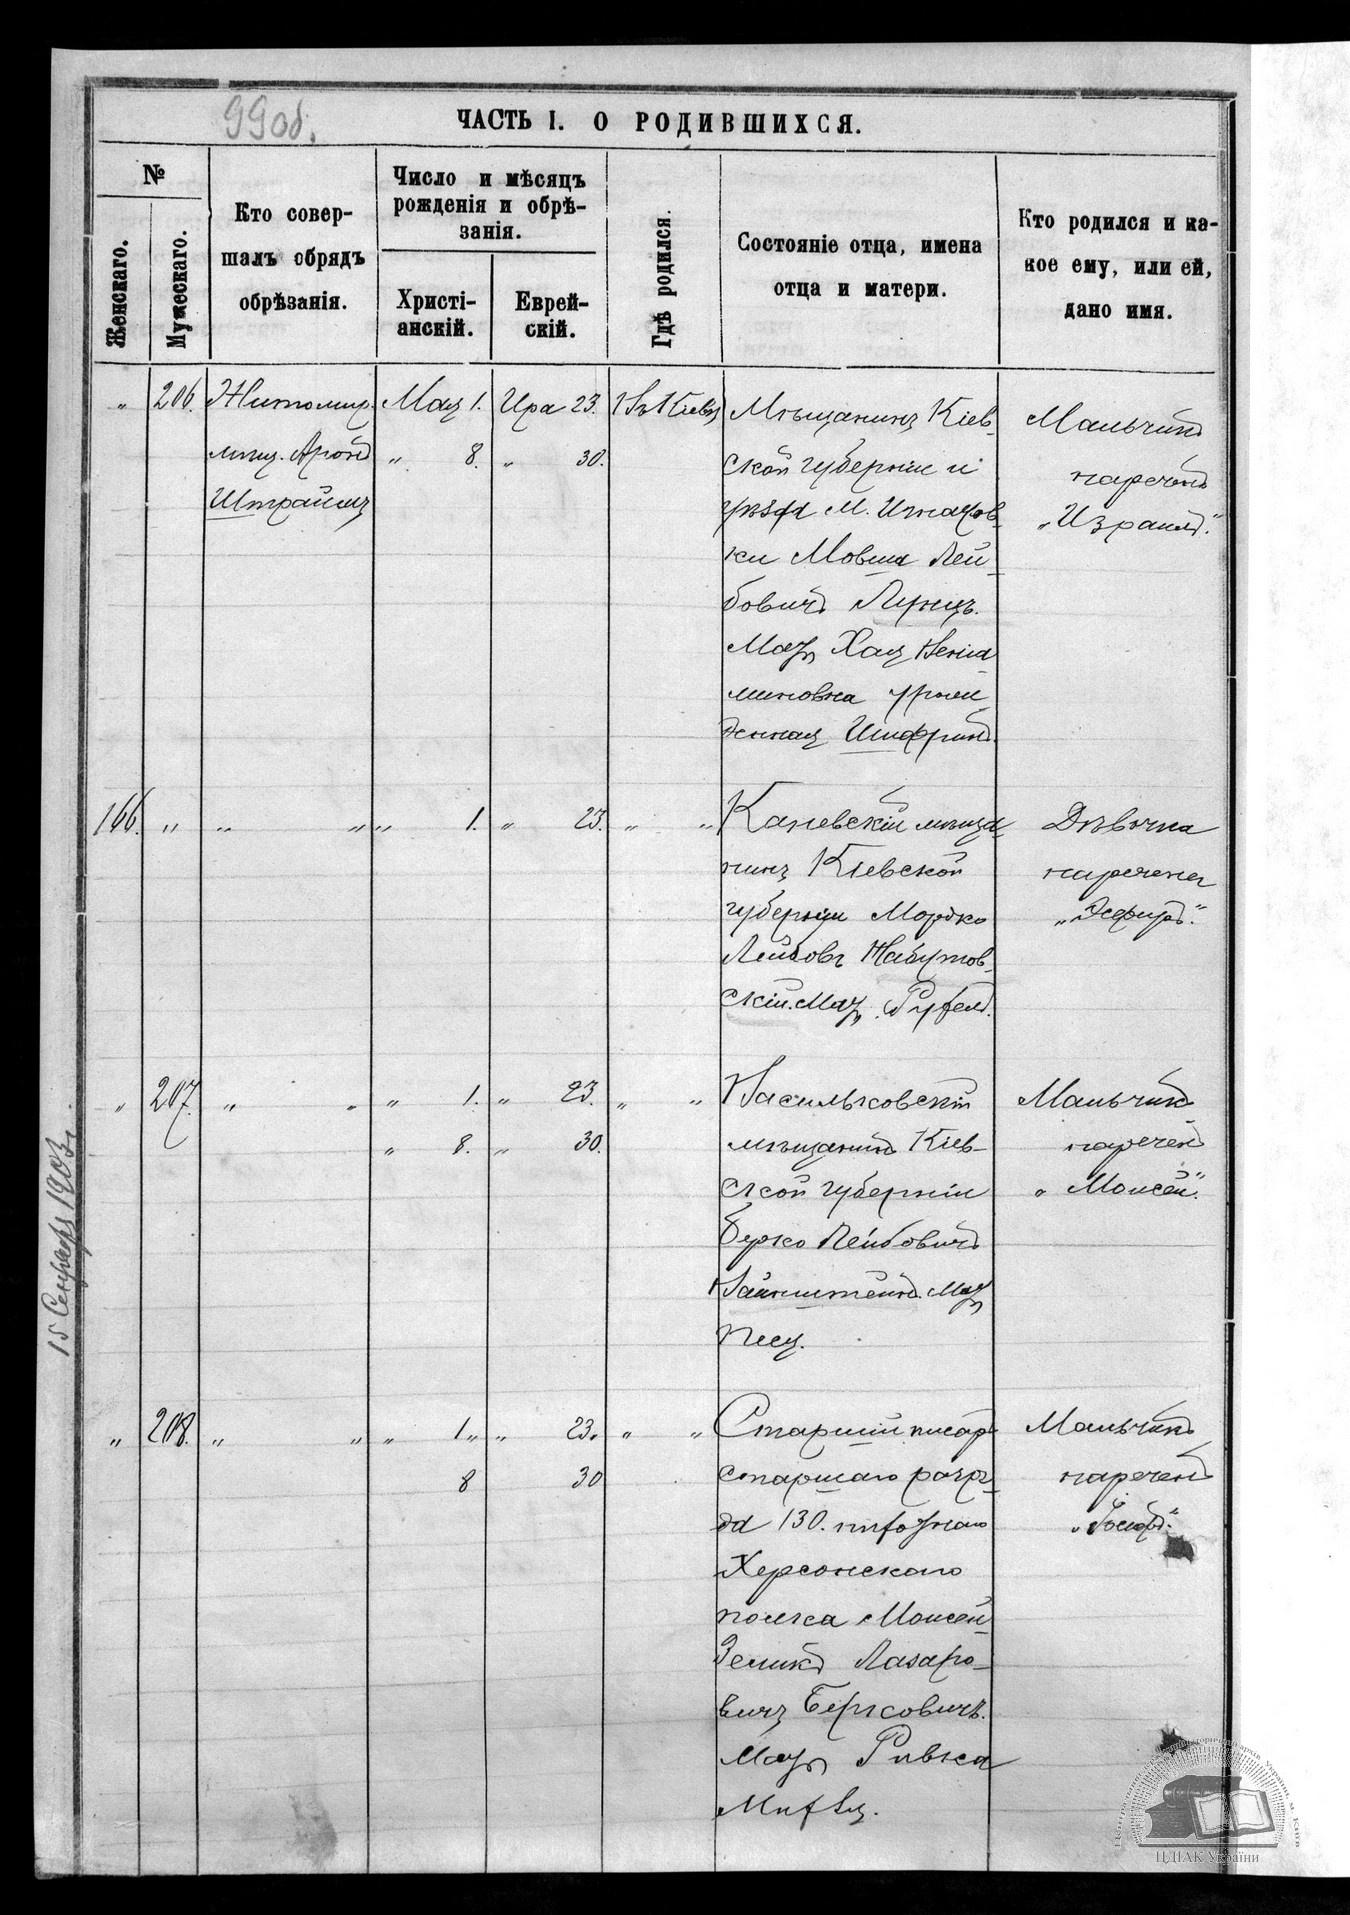 99об.
ЧАСТЬ I. О РОДИВШИХСЯ.
№
Женскаго.
Мужескаго.
Кто совер-
шалъ обрядъ
обрѣзанія.
Число и мѣсяцъ
рожденія и обрѣ-
занія.
Христі-
анскій.
Еврей-
скій.
Гдѣ родился.
Состояніе отца, имена
отца и матери.
Кто родился и ка-
кое ему, или ей,
дано имя.
„ 206. Житомир.
мѣщ. Аронъ
Штрайм
Мая 1. Ира 23. Въ Кіевѣ
„ 8. „ 30.
Мѣщанинъ Кіев-
ской губерніи и
уѣзда М. Игнатов-
ки Мовша Лей-
бовичъ Лунцъ.
Мать Хая Веніа-
миновна урож-
денная Шифринъ.
Мальчикъ
нареченъ
„Израиль".
166. „ „ „ „ 1. „ 23. „ „
Каневскій мѣща-
нинъ Кіевской
губерніи Мордко
Лейбовъ Набутов-
скій. Мать Рухель.
Дѣвочка
наречена
„Эсфирь".
„ 207. „ „ „ 1. „ 23. „ „
„ 8. „ 30.
Васильковскій
мѣщанинъ Кіев-
ской губерніи
Берко Лейбовичъ
Вайнштейнъ. Мать
Песя.
Мальчикъ
нареченъ
„Моисей".
„ 208. „ „ „ 1 „ „ 23. „ „
8 30
Старшій писарь
старшаго разря-
да 130. пѣхотнаго
Херсонскаго
полка Моисей-
Зеликъ Лазаро-
вичъ Берковичъ.
Мать Ривка
Мальчикъ
нареченъ
„Іосифъ".
15 Сентября 1903 г.
ЦДІАК України